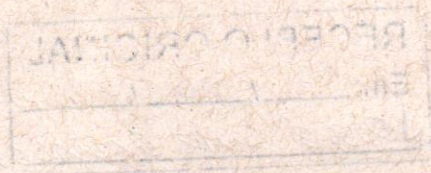 RECEBI O ORIGINAL
Em / /